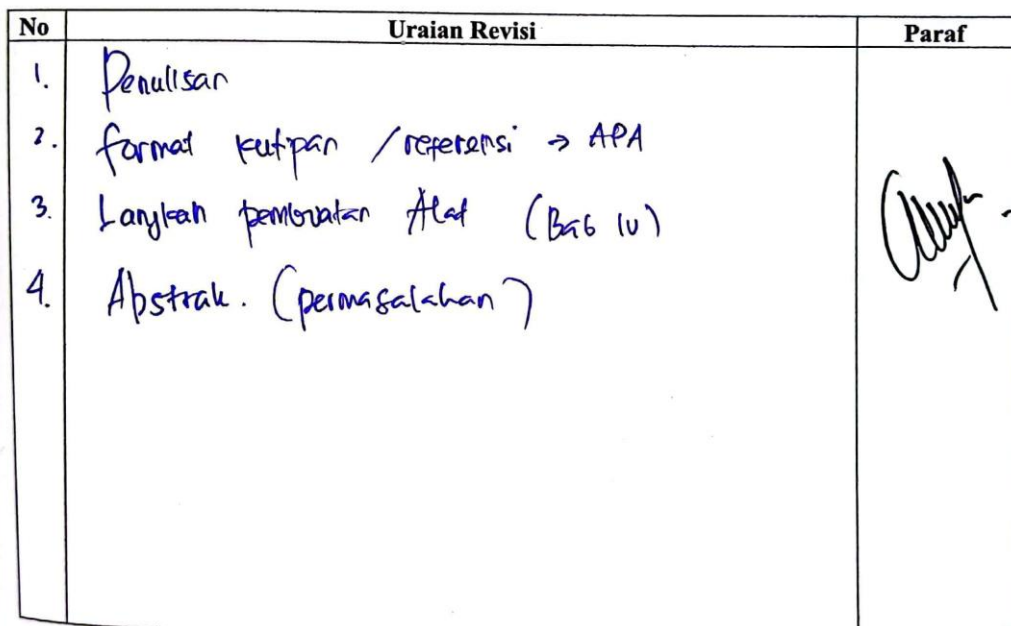 No Uraian Revisi Paraf
1. Penulisan
2. format kutipan / referensi → APA
3. Langkah pembuatan Alat (Bab IV)
4. Abstrak. (permasalahan)